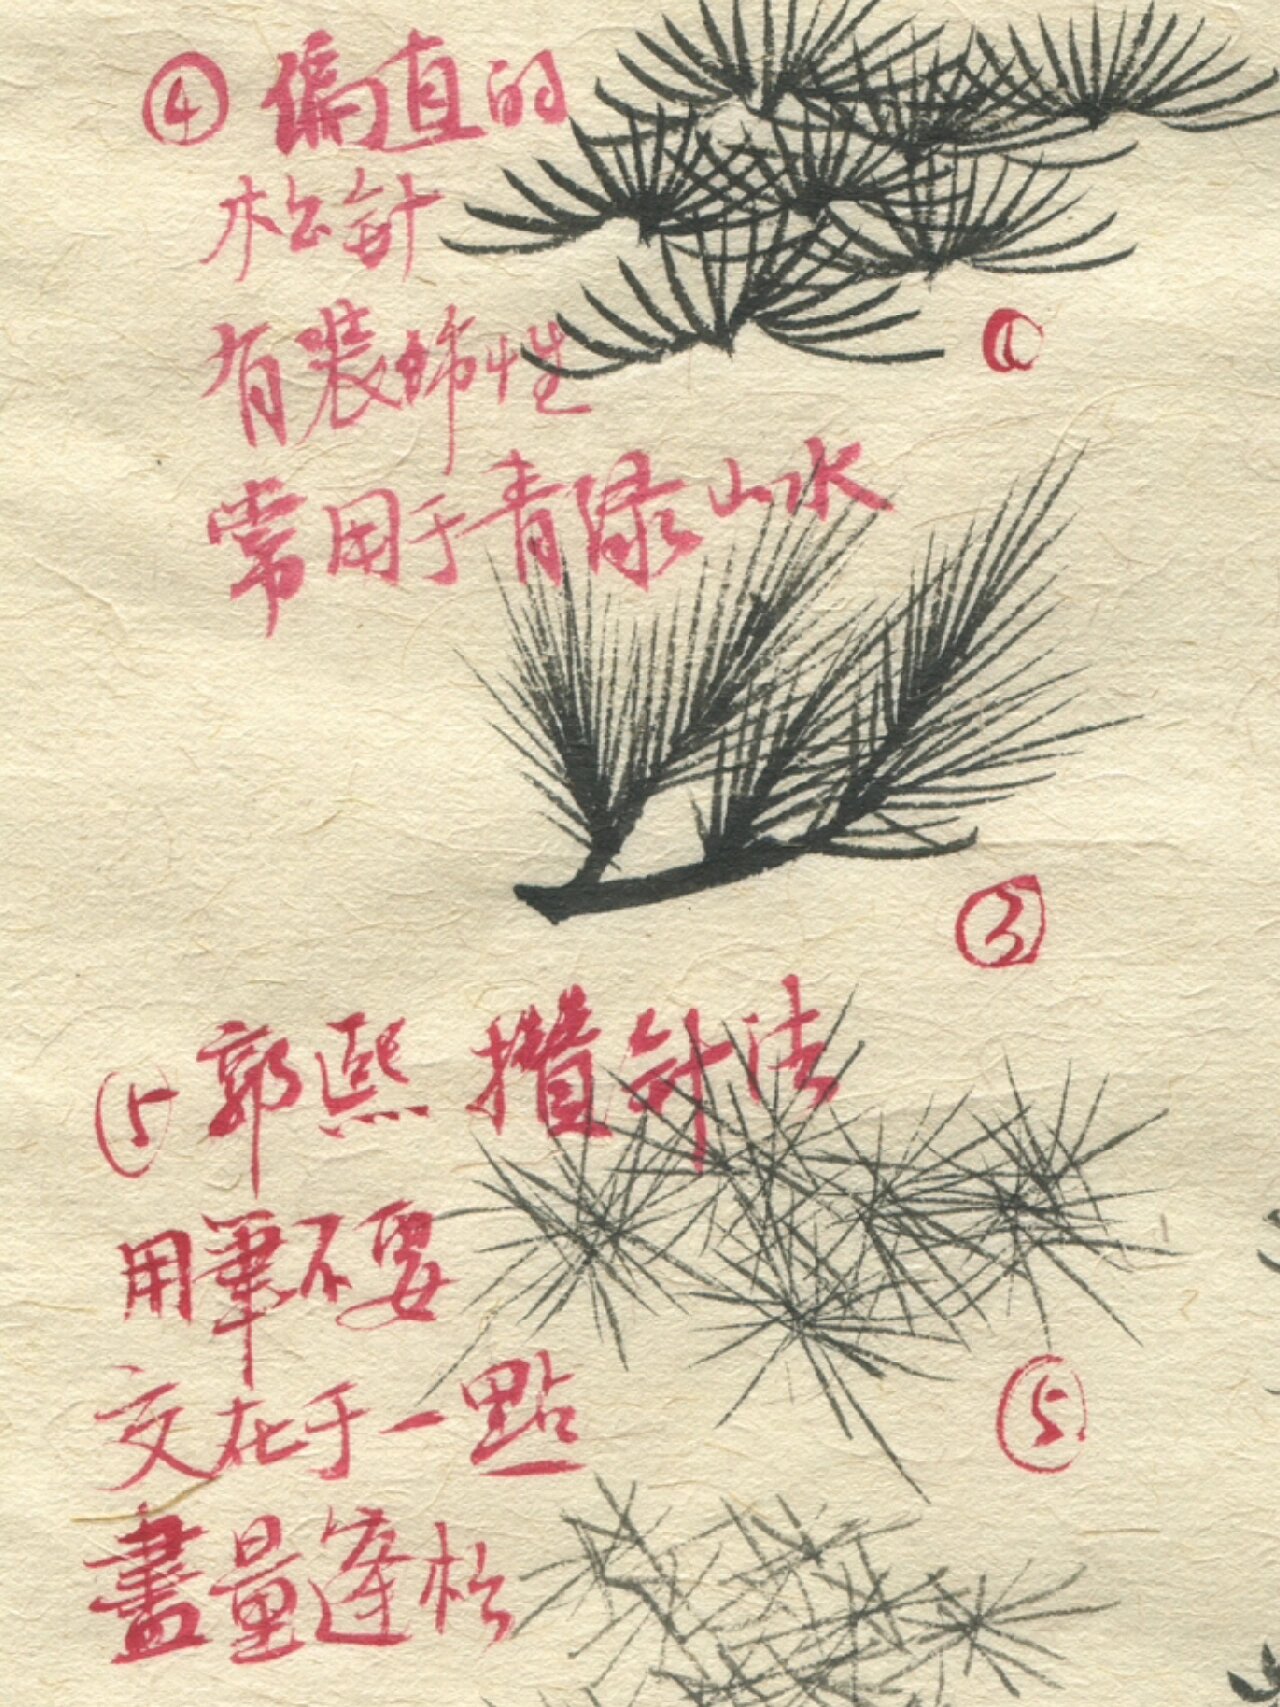 ④ 偏直的
松針
有装飾性
常用于青绿山水
③
⑤ 郭熙 攢針法
用筆不要
交在于一點
⑤
盡量蓬松